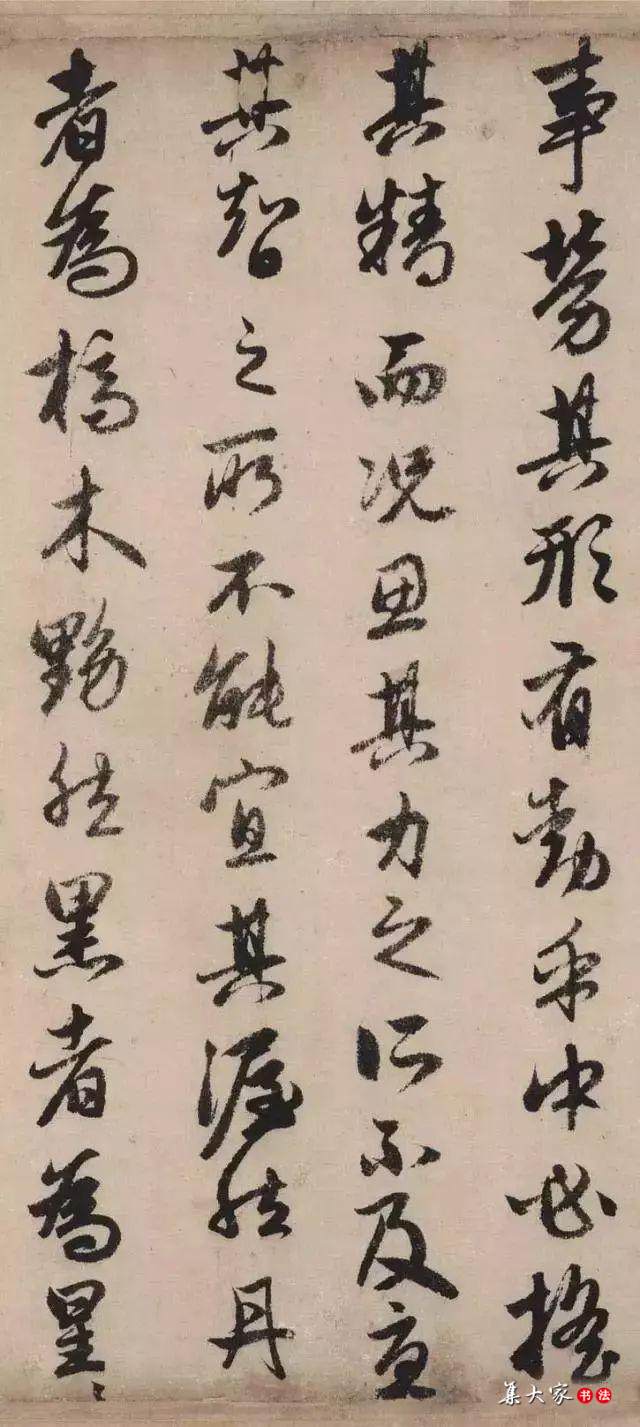 事劳其形有動乎中必摇
其精而况思其力之所不及憂
其智之所不能宜其渥然丹
者為槁木黟然黑者為星〻
集大家书法